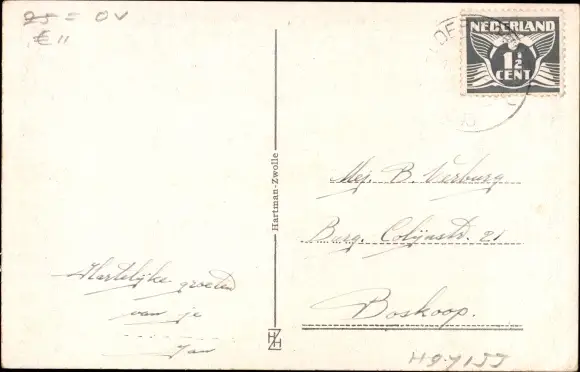 25 = OV
€ 11
NEDERLAND
1½
CENT
Hartman-Zwolle
Mej. B. Verburg
Burg. Colijnstr. 21
Boskoop.
Hartelijke groeten
van je
Jan